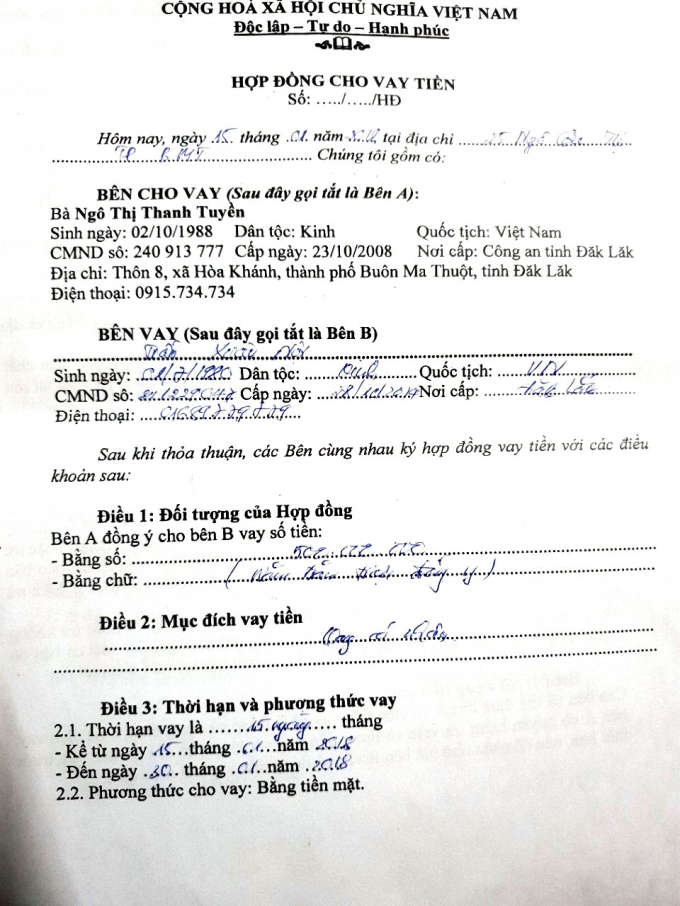 CỘNG HOÀ XÃ HỘI CHỦ NGHĨA VIỆT NAM
Độc lập – Tự do – Hạnh phúc
HỢP ĐỒNG CHO VAY TIỀN
Số: ...../...../HĐ
Hôm nay, ngày 15 tháng 01 năm 2018, tại địa chỉ 25 Ngô
TP BMT Chúng tôi gồm có:
BÊN CHO VAY (Sau đây gọi tắt là Bên A):
Bà Ngô Thị Thanh Tuyền
Sinh ngày: 02/10/1988 Dân tộc: Kinh Quốc tịch: Việt Nam
CMND số: 240 913 777 Cấp ngày: 23/10/2008 Nơi cấp: Công an tỉnh Đăk Lăk
Địa chỉ: Thôn 8, xã Hòa Khánh, thành phố Buôn Ma Thuột, tỉnh Đăk Lăk
Điện thoại: 0915.734.734
BÊN VAY (Sau đây gọi tắt là Bên B)
Trần Xuân
Sinh ngày: Dân tộc: Kinh Quốc tịch: VN
CMND số: Cấp ngày: Nơi cấp: Đăk Lăk
Điện thoại:
Sau khi thỏa thuận, các Bên cùng nhau ký hợp đồng vay tiền với các điều
khoản sau:
Điều 1: Đối tượng của Hợp đồng
Bên A đồng ý cho bên B vay số tiền:
- Bằng số: 500 000 000
- Bằng chữ: (Năm trăm triệu đồng y)
Điều 2: Mục đích vay tiền
cá nhân
Điều 3: Thời hạn và phương thức vay
2.1. Thời hạn vay là 15 ngày tháng
- Kể từ ngày 15 tháng 01 năm 2018
- Đến ngày 30 tháng 01 năm 2018
2.2. Phương thức cho vay: Bằng tiền mặt.